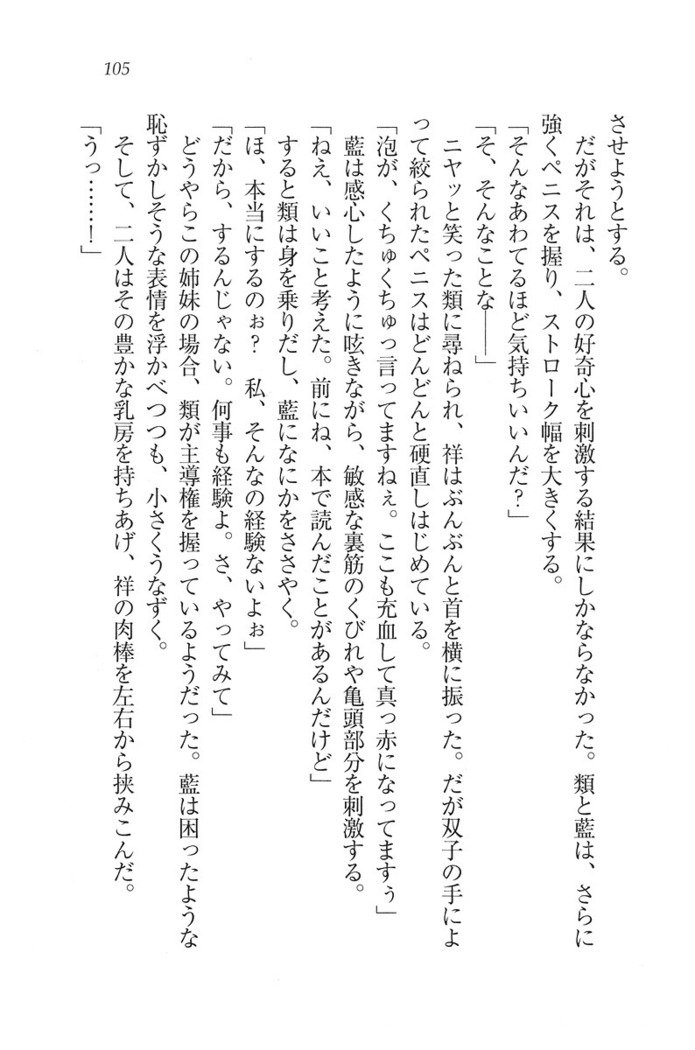 105
させようとする。
だがそれは、二人の好奇心を刺激する結果にしかならなかった。類と藍は、さらに
強くペニスを握り、ストローク幅を大きくする。
「そんなあわてるほど気持ちいいんだ？」
「そ、そんなことな――」
ニヤッと笑った類に尋ねられ、祥はぶんぶんと首を横に振った。だが双子の手によ
って絞られたペニスはどんどんと硬直しはじめている。
「泡が、くちゅくちゅっ言ってますねぇ。ここも充血して真っ赤になってますぅ」
藍は感心したように呟きながら、敏感な裏筋のくびれや亀頭部分を刺激する。
「ねえ、いいこと考えた。前にね、本で読んだことがあるんだけど」
すると類は身を乗りだし、藍になにかをささやく。
「ほ、本当にするのぉ？　私、そんなの経験ないよぉ」
「だから、するんじゃない。何事も経験よ。さ、やってみて」
どうやらこの姉妹の場合、類が主導権を握っているようだった。藍は困ったような
恥ずかしそうな表情を浮かべつつも、小さくうなずく。
そして、二人はその豊かな乳房を持ちあげ、祥の肉棒を左右から挟みこんだ。
「うっ……！」